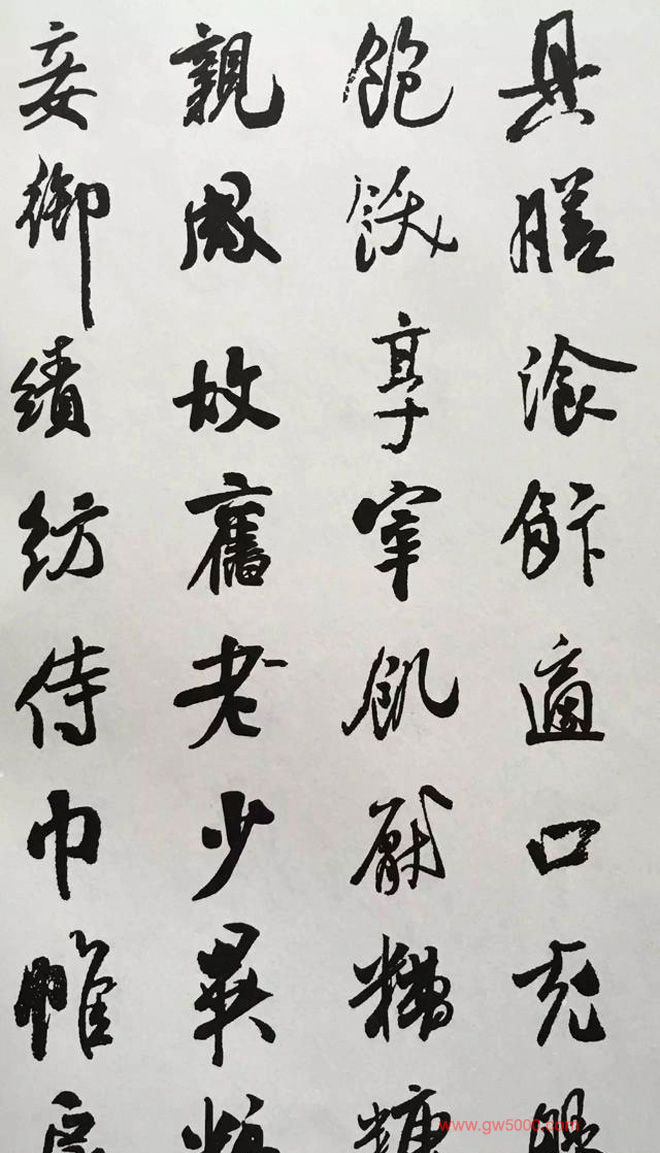 具膳湌飰適口充
飽飫享宰飢厭糟糠
親戚故舊老少異
妾御績紡侍巾帷
www.gw5000.com